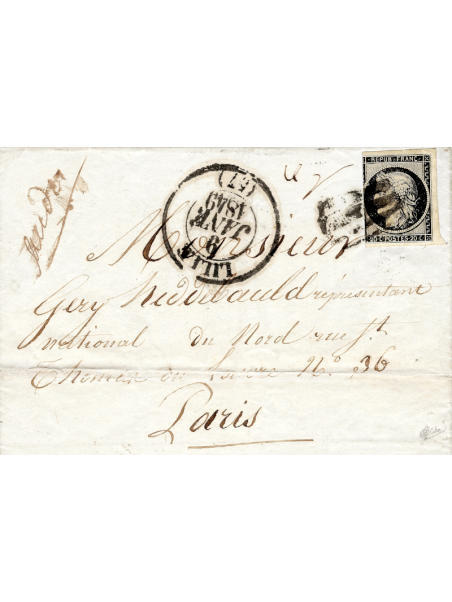 REPUB. FRANC.
20 C. POSTES 20 C.
LILLE
9
JANV.
1849
(57)
Monsieur
Gery représentant
national du Nord rue St
Thomas du Louvre N° 36
Paris